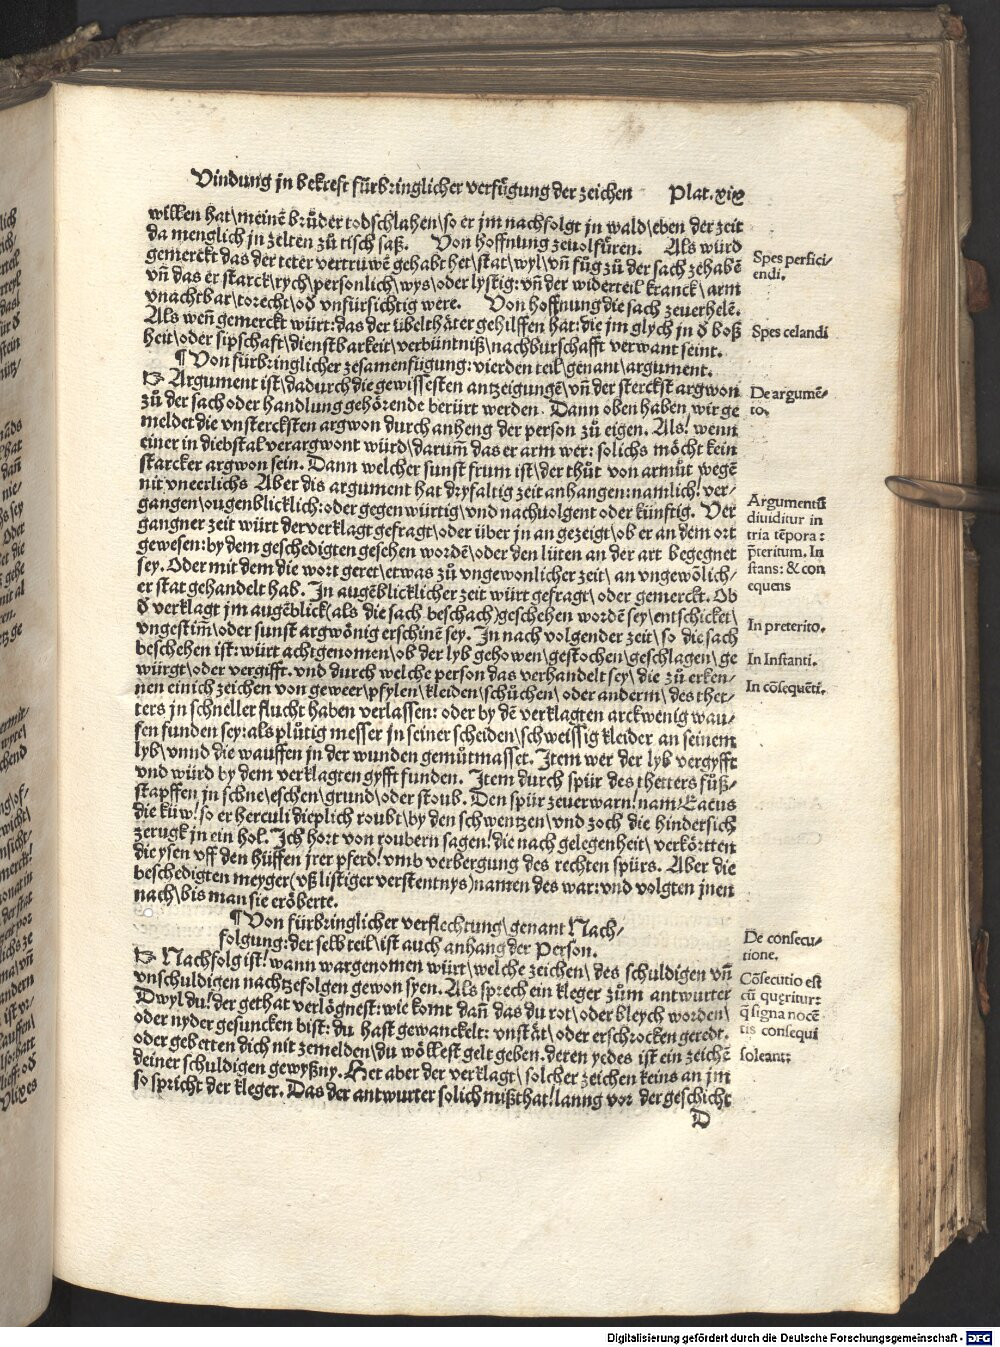 Vindung jn bekreft fürbringlicher verfügung der zeichen Plat. xix
willen hat\meinē brůder todschlahen\so er jm nachfolgt jn wald\eben der zeit
da menglich jn zelten zů tisch saß. Von hoffnung zeuolfüren. Als würd
gemerckt das der teter vertruwē gehabt het\stat\wyl\vn̄ fůg zů der sach zehabē
vn̄ das er starck\rych\persönlich\wys\oder lystig: vn̄ der widerteil kranck\arm
vnachtbar\torecht\oď vnfürsichtig were. Von hoffnung die sach zeuerhelē.
Als wen̄ gemerckt würt: das der übelthäter gehilffen hat: die jm glych jn ď boß
heit\oder sipschaft\dienstbarkeit\verbüntniß\nachburschafft verwant seint.
¶ Von fürbringlicher zesamenfügung: vierden teil\genant\argument.
Argument ist\dadurch die gewissesten antzeigungē\vn̄ der sterckst argwon
zů der sach oder handlung gehörende berürt werden. Dann oben haben wir ge
meldet die vnstercksten argwon durch anheng der person zů eigen. Als! wenn
einer in diebstal verargwont würd\darum̄ das er arm wer: solichs möcht kein
starcker argwon sein. Dann welcher sunst frum ist\der thüt von armůt wegē
nit vneerlichs Aber dis argument hat dryfaltig zeit anhangen: namlich! ver-
gangen\ougenblicklich: oder gegenwürtig\vnd nachuolgent oder künftig. Ver
gangner zeit würt der verklagt gefragt\oder über jn an gezeigt\ob er an dem ort
gewesen: by dem geschedigten gesehen wordē\oder den lüten an der art begegnet
sey. Oder mit dem die wort geret\etwas zů vngewonlicher zeit\an vngewōlich-
er stat gehandelt hab. In augēblicklicher zeit würt gefragt\oder gemerckt. Ob
ď verklagt jm augēblick(als die sach beschach)geschehen wordē sey\entschicket\
vngestim̄\oder sunst argwönig erschinē sey. In nach volgender zeit\so die sach
beschehen ist: würt acht genomen\ob der lyb gehowen\gestochen\geschlagen\ge
würgt\oder vergifft. vnd durch welche person das verhandelt sey\die zů erken-
nen einich zeichen von geweer\pfylen\kleiden\schůchen\oder anderm\des thet-
ters jn schneller flucht haben verlassen: oder by dē verklagten arckwenig wau-
fen funden sey: als plůtig messer jn seiner scheiden\schweissig kleider an seinem
lyb\vnnd die wauffen jn der wunden gemůtmasset. Item wer der lyb vergyfft
vnd würd by dem verklagten gyfft funden. Item durch spür des thetters fůß-
stapffen jn schne\eschen\grund\oder stoub. Den spür zeuerwarn! nam Cacus
die küw! so er herculi dieplich roubt\by den schwentzen\vnd zoch die hindersich
zerugk jn ein hol. Ich hort von roubern sagen! die nach gelegenheit\verkörtten
die ysen vff den hüffen jrer pferd! vmb verbergung des rechten spürs. Aber die
beschedigten meyger(vß listiger verstentnys)namen des war: vnd volgten jnen
nach\bis man sie eröberte.
¶ Von fürbringlicher verflechtung\genant Nach-
folgung: der selb teil\ist auch anhang der Person.
Nachfolg ist! wann wargenomen würt\welche zeichen\des schuldigen vn̄
vnschuldigen nachtzefolgen gewon syen. Als sprech ein kleger zům antwurter
Dwyl du! der gethat verlögnest: wie komt dan̄ das du rot\oder bleych worden\
oder nyder gesuncken bist: du hast gewanckelt: vnstät\oder erschrocken geredt.
oder gebetten dich nit zemelden\du wöllest gelt geben. deren yedes ist ein zeichē
deiner schuldigen gewyßny. Het aber der verklagt\solcher zeichen keins an jm
so spricht der kleger. Das der antwurter solich mißthat! lanng vor der geschicht
D
Spes perfici-
endi.
Spes celandi
De argumē-
to.
Argumentū
diuiditur in
tria tēpora:
p̄teritum. In
stans: & con
equens
In preterito.
In Instanti.
In cōsequēti.
De consecu-
tione.
Cōsecutio est
cū queritur:
q̄ signa nocē
tis consequi
soleant:
Digitalisierung gefördert durch die Deutsche Forschungsgemeinschaft - DFG